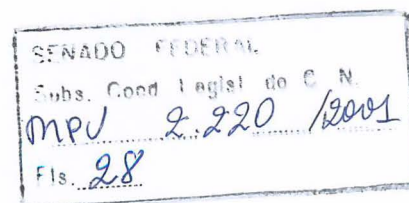 SENADO FEDERAL
Subs. Coord. Legisl. do C. N.
MPV 2.220 /2001
Fls. 28